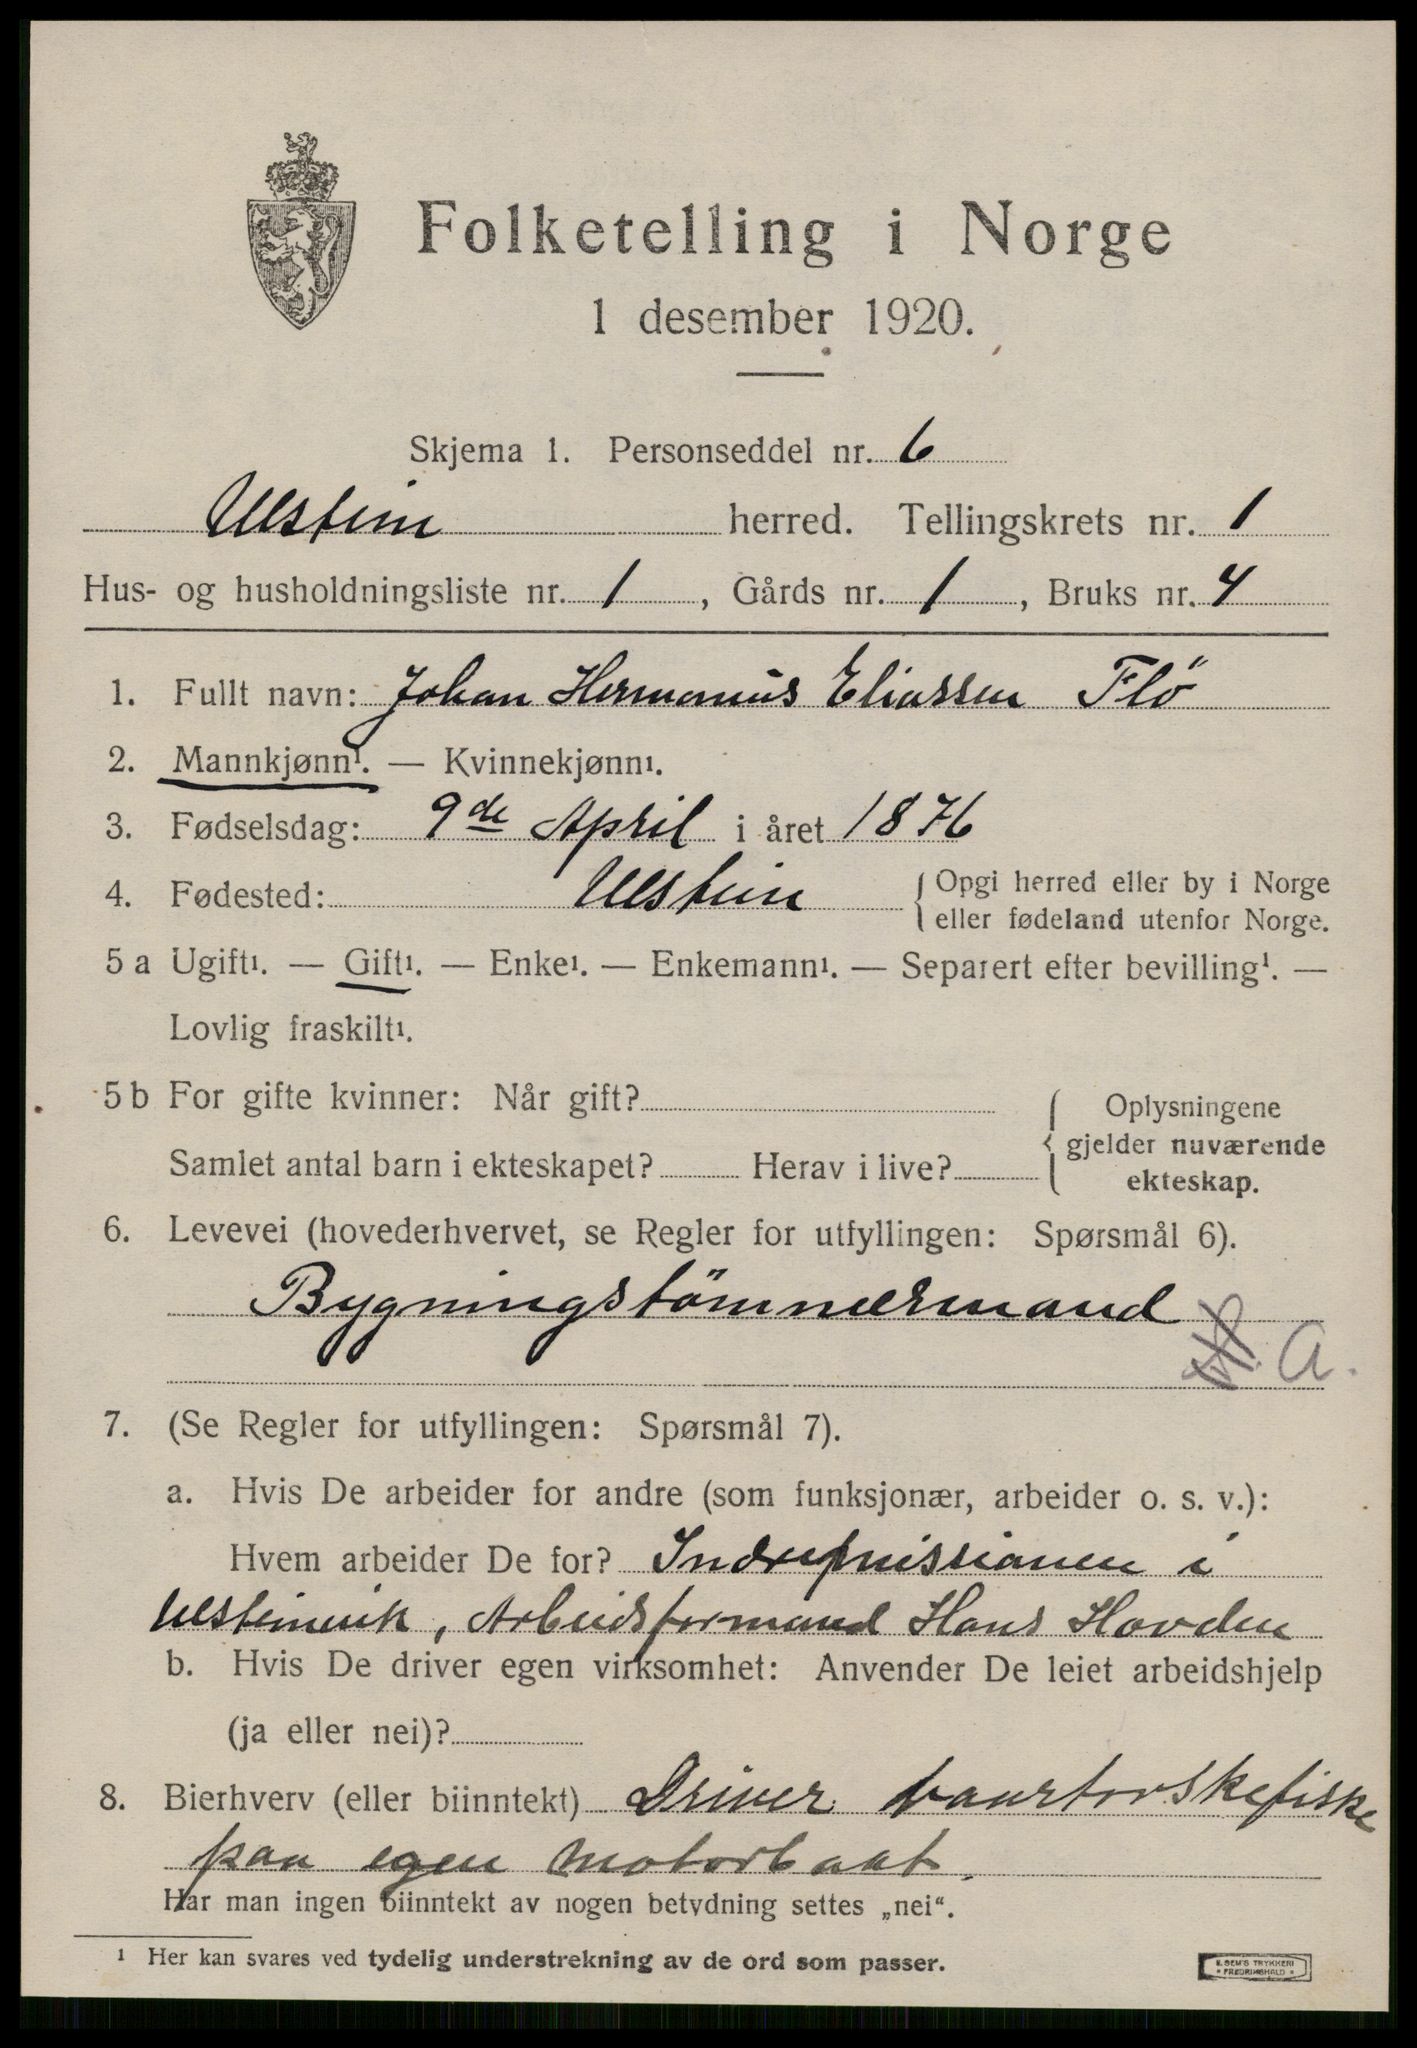 Folketelling i Norge
1 desember 1920.
Skjema 1. Personseddel nr. 6
Ulstein herred. Tellingskrets nr. 1
Hus- og husholdningsliste nr. 1, Gårds nr. 1, Bruks nr. 4
1. Fullt navn: Johan Hermanus Eliassen Flö
2. Mannkjønn¹. — Kvinnekjønn¹.
3. Fødselsdag: 9de April i året 1876
4. Fødested: Ulstein { Opgi herred eller by i Norge
eller fødeland utenfor Norge.
5 a Ugift¹. — Gift¹. — Enke¹. — Enkemann¹. — Separert efter bevilling¹. —
Lovlig fraskilt¹.
5 b For gifte kvinner: Når gift? { Oplysningene
gjelder nuværende
Samlet antal barn i ekteskapet? Herav i live?
ekteskap.
6. Levevei (hovederhvervet, se Regler for utfyllingen: Spørsmål 6).
Bygningstömmermand
A.
7. (Se Regler for utfyllingen: Spørsmål 7).
a. Hvis De arbeider for andre (som funksjonær, arbeider o. s. v.):
Hvem arbeider De for? Indremissionen i
Ulsteinvik, Arbeidsformand Hans Hovden
b. Hvis De driver egen virksomhet: Anvender De leiet arbeidshjelp
(ja eller nei)?
8. Bierhverv (eller biinntekt) Driver vaartorskefiske
paa egen motorbaat.
Har man ingen biinntekt av nogen betydning settes „nei“.
¹ Her kan svares ved tydelig understrekning av de ord som passer.
E. SEM'S TRYKKERI
* FREDRIKSHALD *